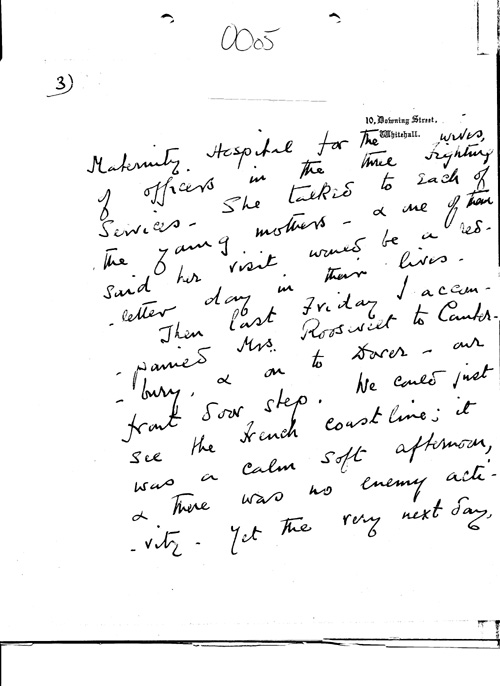 0005
3)
10, Downing Street,
Whitehall.
Maternity Hospital for the wives,
of officers in the three Fighting
Services - She talked to each of
the young mothers - & one of them
said her visit would be a red-
-letter day in their lives -
Then last Friday I accom-
-panied Mrs. Roosevelt to Canter-
-bury, & on to Dover - our
front door step. We could just
see the French coastline; it
was a calm soft afternoon,
& there was no enemy acti-
-vity - Yet the very next day,